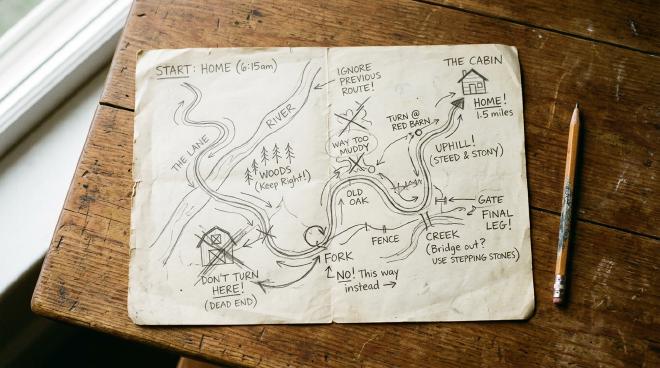 START: HOME (6:15am)
IGNORE
PREVIOUS
ROUTE!
THE CABIN
HOME!
1.5 miles
RIVER
THE LANE
WOODS
(Keep Right!)
WAY TOO
MUDDY
TURN @
RED BARN
UPHILL!
(STEED & STONY)
OLD
OAK
GATE
FINAL
LEG!
FENCE
CREEK
(Bridge out?
USE STEPPING STONES)
FORK
NO! This way
instead →
DON'T TURN
HERE!
(DEAD END)